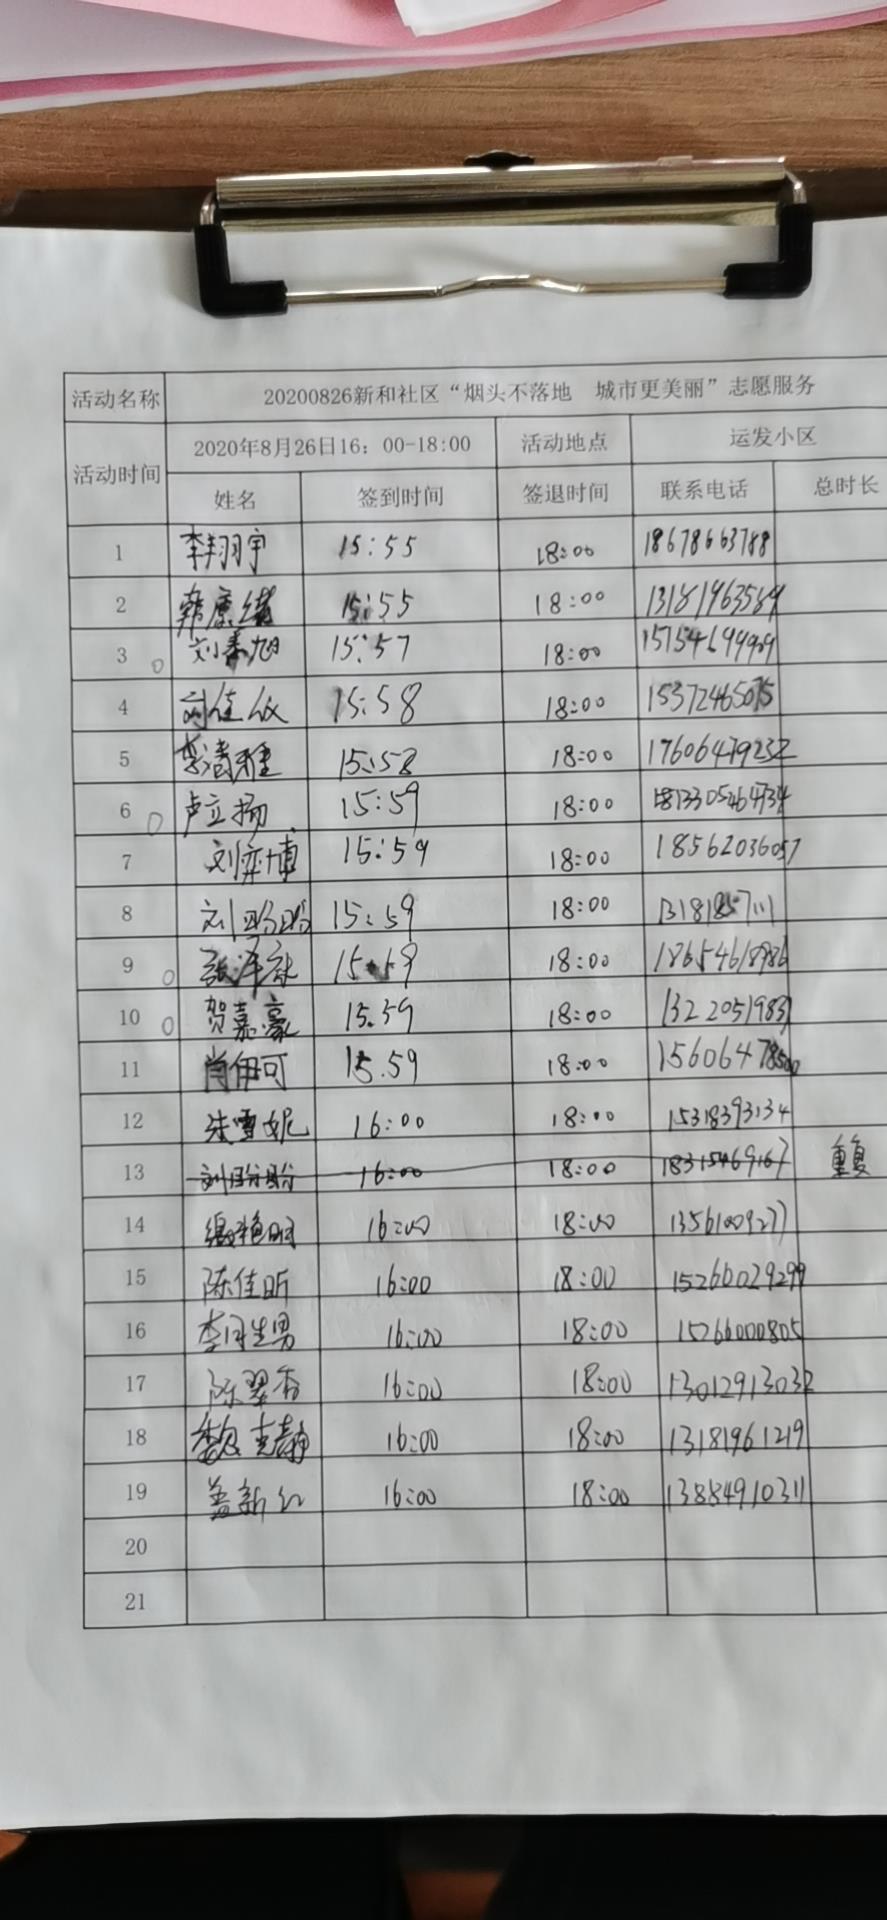 活动名称 20200826新和社区“烟头不落地 城市更美丽”志愿服务
活动时间 2020年8月26日16：00-18:00 活动地点 运发小区
姓名 签到时间 签退时间 联系电话 总时长
1 李翔宇 15:55 18:00 18678663788
2 15:55 18:00 13181963589
3 15:57 18:00
4 刘佳仪 15:58 18:00 15372465075
5 李清雅 15:58 18:00 17606479232
6 卢立扬 15:59 18:00
7 刘奕博 15:59 18:00 18562036057
8 15:59 18:00
9 15:59 18:00 18654618986
10 贺嘉豪 15:59 18:00 13220519837
11 肖伊可 15.59 18:00 15606478500
12 朱雪妮 16:00 18:00 15318393134
13 刘盼盼 16:00 18:00 18315469167 重复
14 16:00 18:00 13561009277
15 陈佳昕 16:00 18:00 15266029299
16 16:00 18:00 15266000805
17 陈翠香 16:00 18:00 13012913032
18 16:00 18:00 13181961219
19 盖新红 16:00 18:00 13884910311
20
21